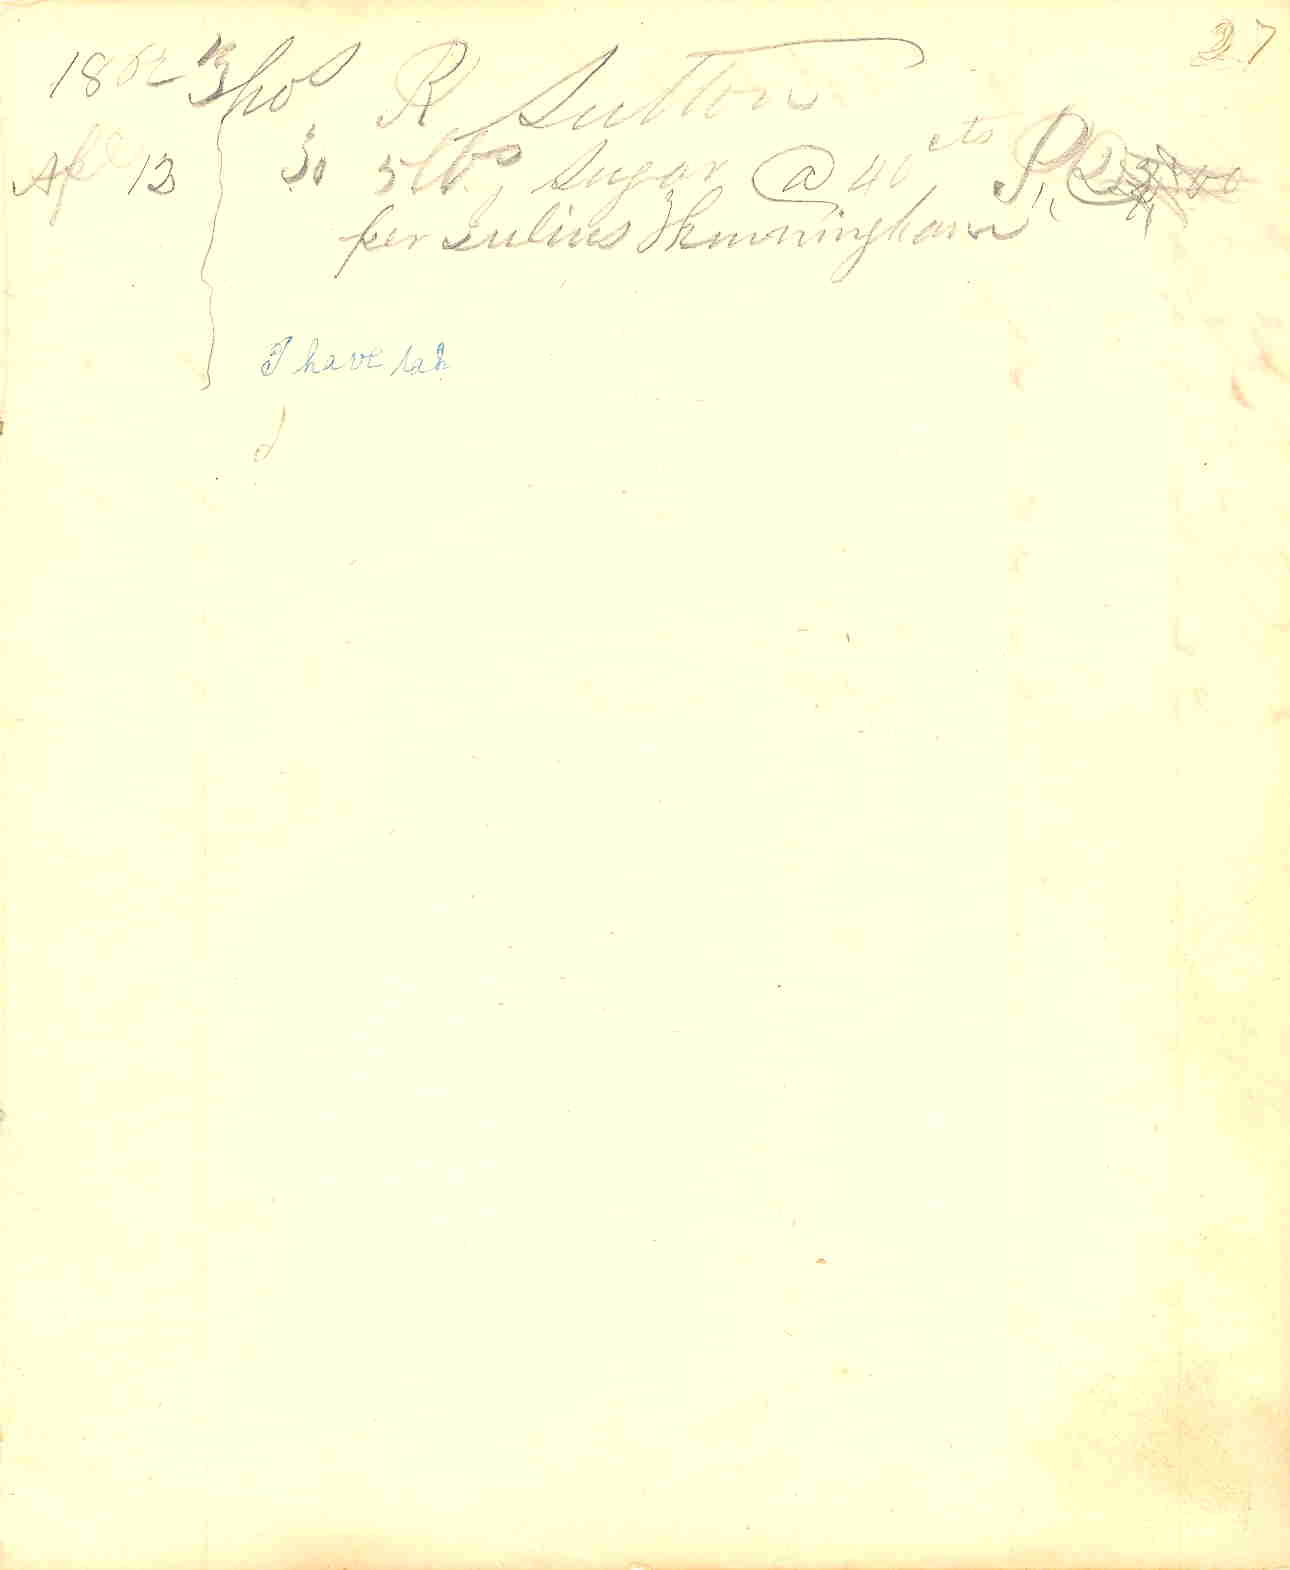 27
1862 Thos R Sutton
Apl 13 To 5 lbs Sugar @ 40 cts $2.00
per Julius
I have